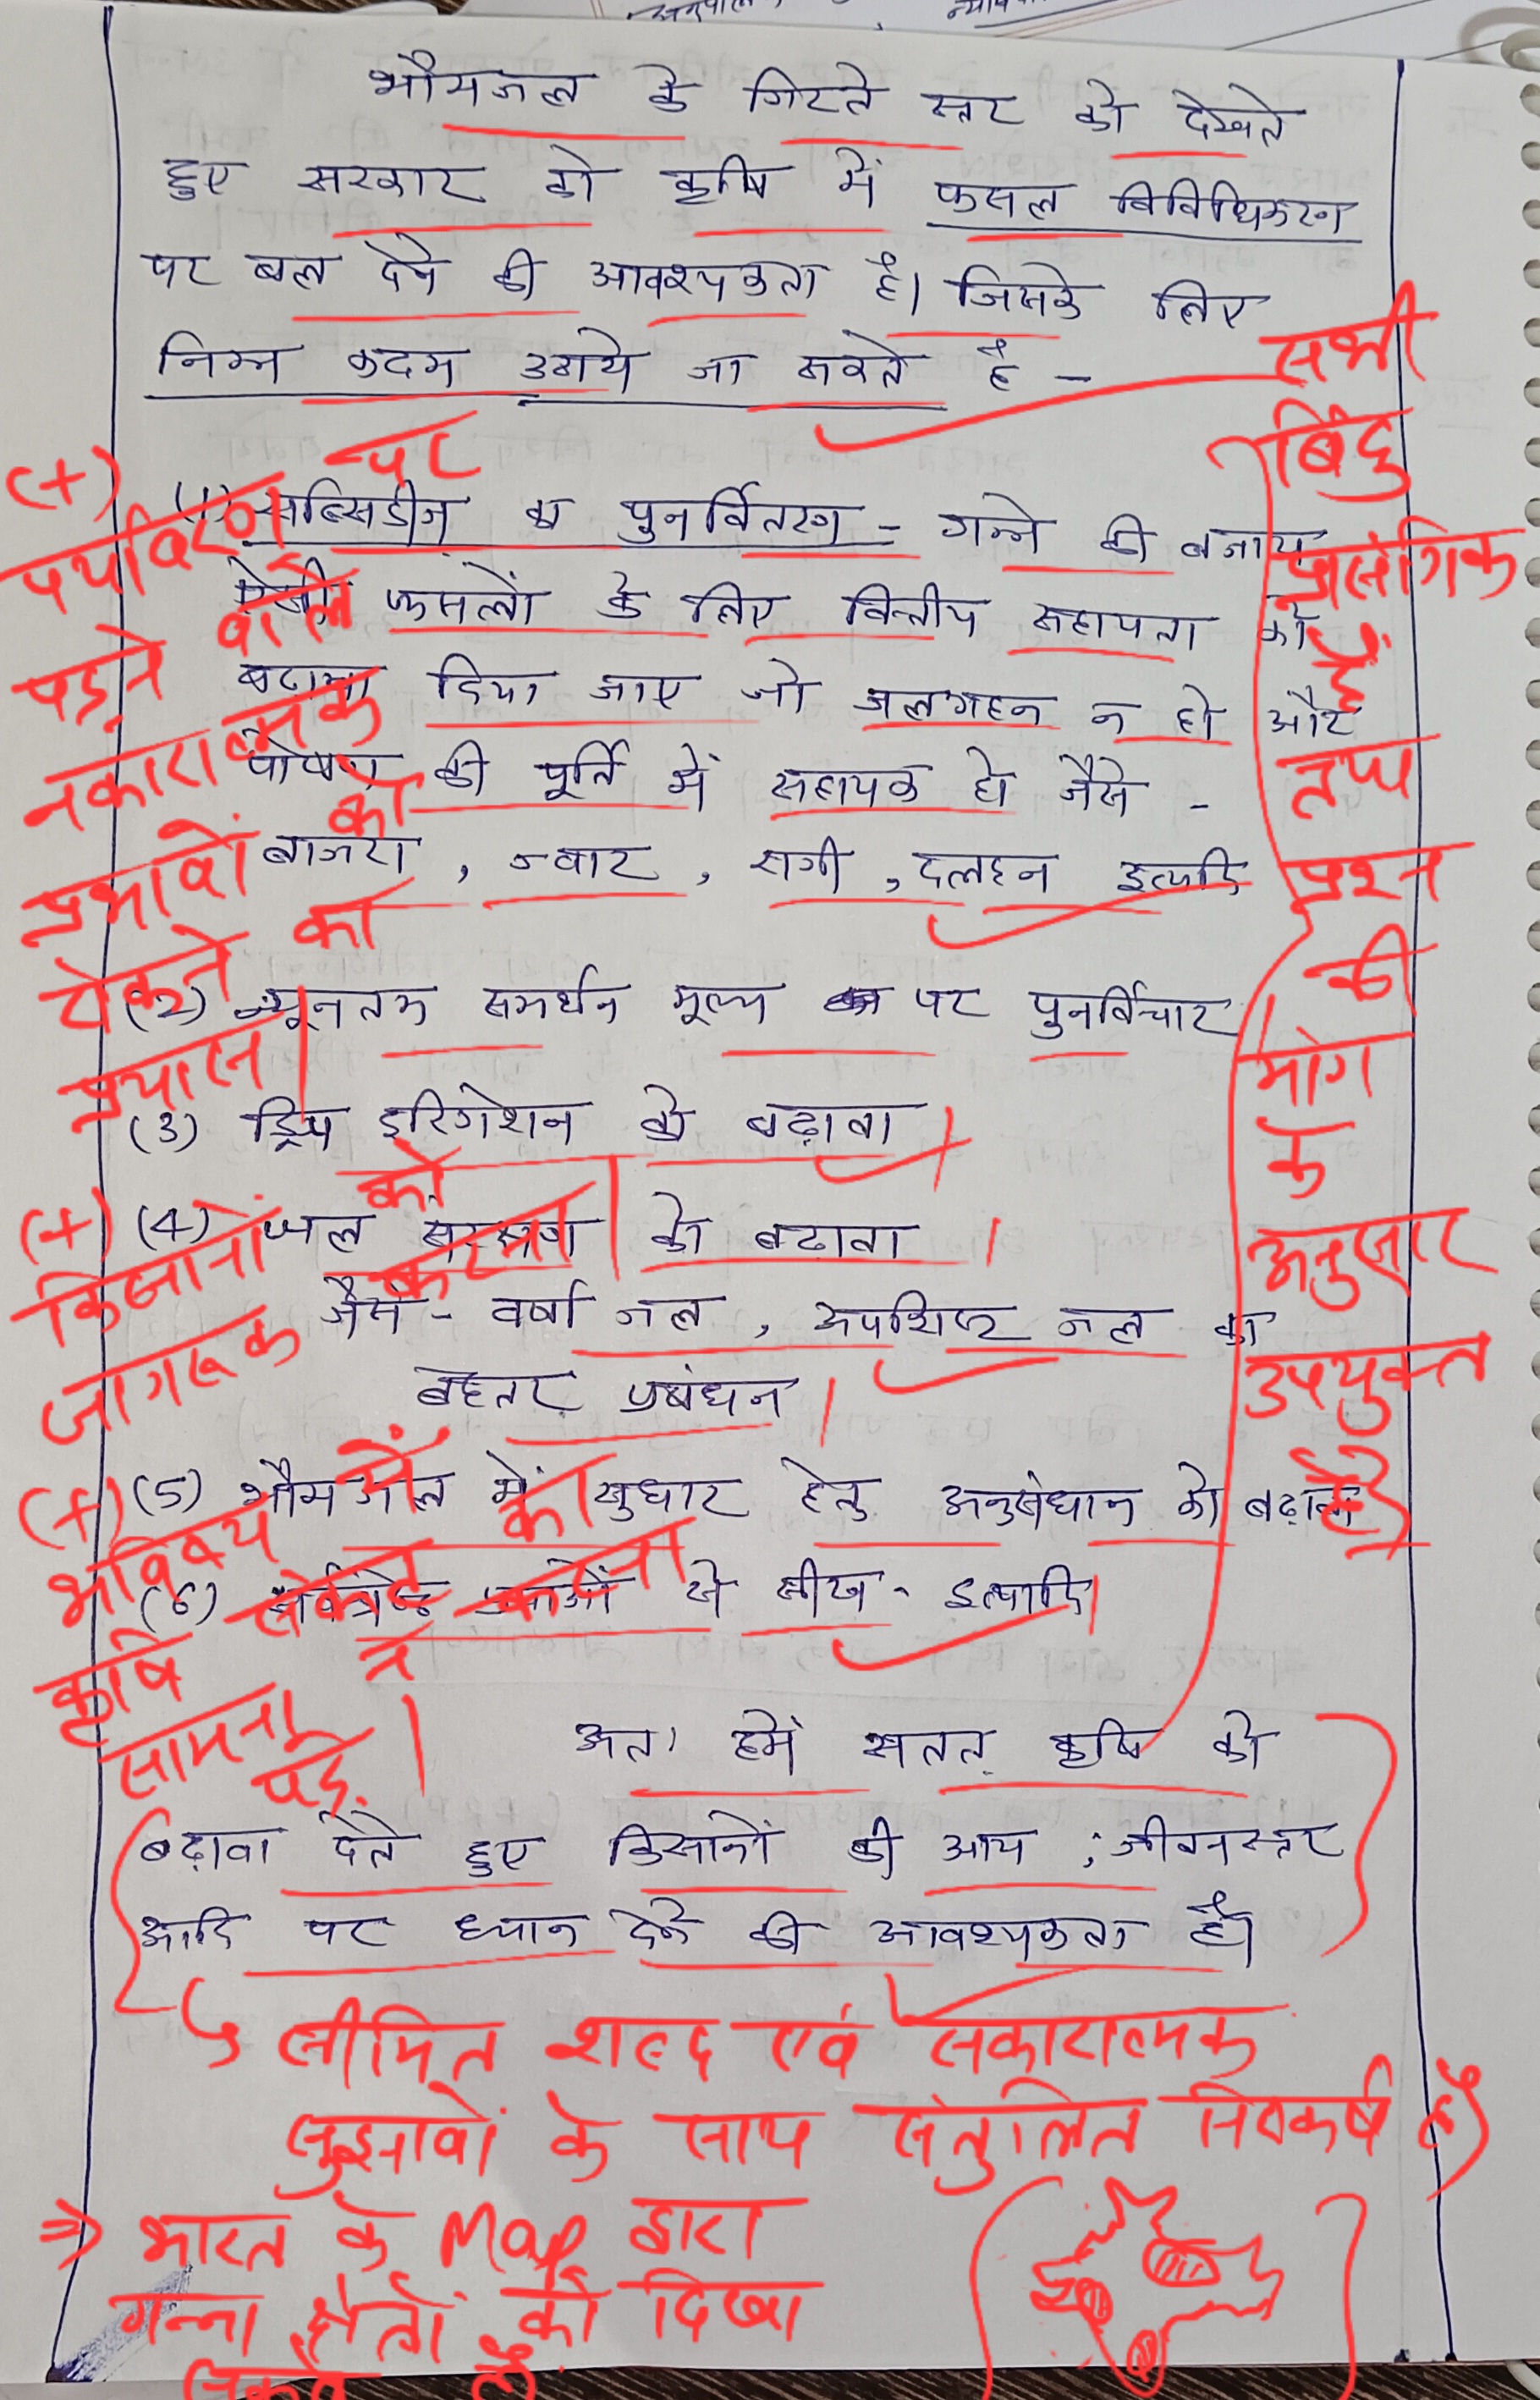 भौमजल के गिरते स्तर को देखते
हुए सरकार को कृषि में फसल विविधिकरण
पर बल देने की आवश्यकता है। जिसके लिए
निम्न कदम उठाये जा सकते है -
(1) सब्सिडीज का पुनर्वितरण - गन्ने की बजाय
ऐसी फसलों के लिए वित्तीय सहायता को
बढावा दिया जाए जो जलगहन न हो और
पोषण की पूर्ति में सहायक हो जैसे -
बाजरा , ज्वार , रागी , दलहन इत्यादि
(2) न्यूनतम समर्थन मूल्य पर पुनर्विचार
(3) ड्रिप इरिगेशन को बढ़ावा
(4) जल संरक्षण को बढावा
जैसे - वर्षा जल , अपशिष्ट जल का
बेहतर प्रबंधन
(5) भौमजल में सुधार हेतु अनुसंधान को बढ़ावा
(6) से सीख - इत्यादि
अतः हमें सतत् कृषि को
बढ़ावा देते हुए किसानों की आय , जीवनस्तर
आदि पर ध्यान देने की आवश्यकता है।
सभी
बिंदु
प्रासंगिक
हैं
तथा
प्रश्न
की
मांग
के
अनुसार
उपयुक्त
है
(+) पर्यावरण पर
पड़ने वाले
नकारात्मक
प्रभावों को
रोकने का
प्रयास।
(+) किसानों को
जागरूक करना।
(+) भविष्य में
कृषि संकट का
सामना करना
न पड़े।
सीमित शब्द एवं सकारात्मक
सुझावों के साथ संतुलित निष्कर्ष है
⇒ भारत के Map द्वारा
गन्ना क्षेत्रों को दिखा
सकते हैं